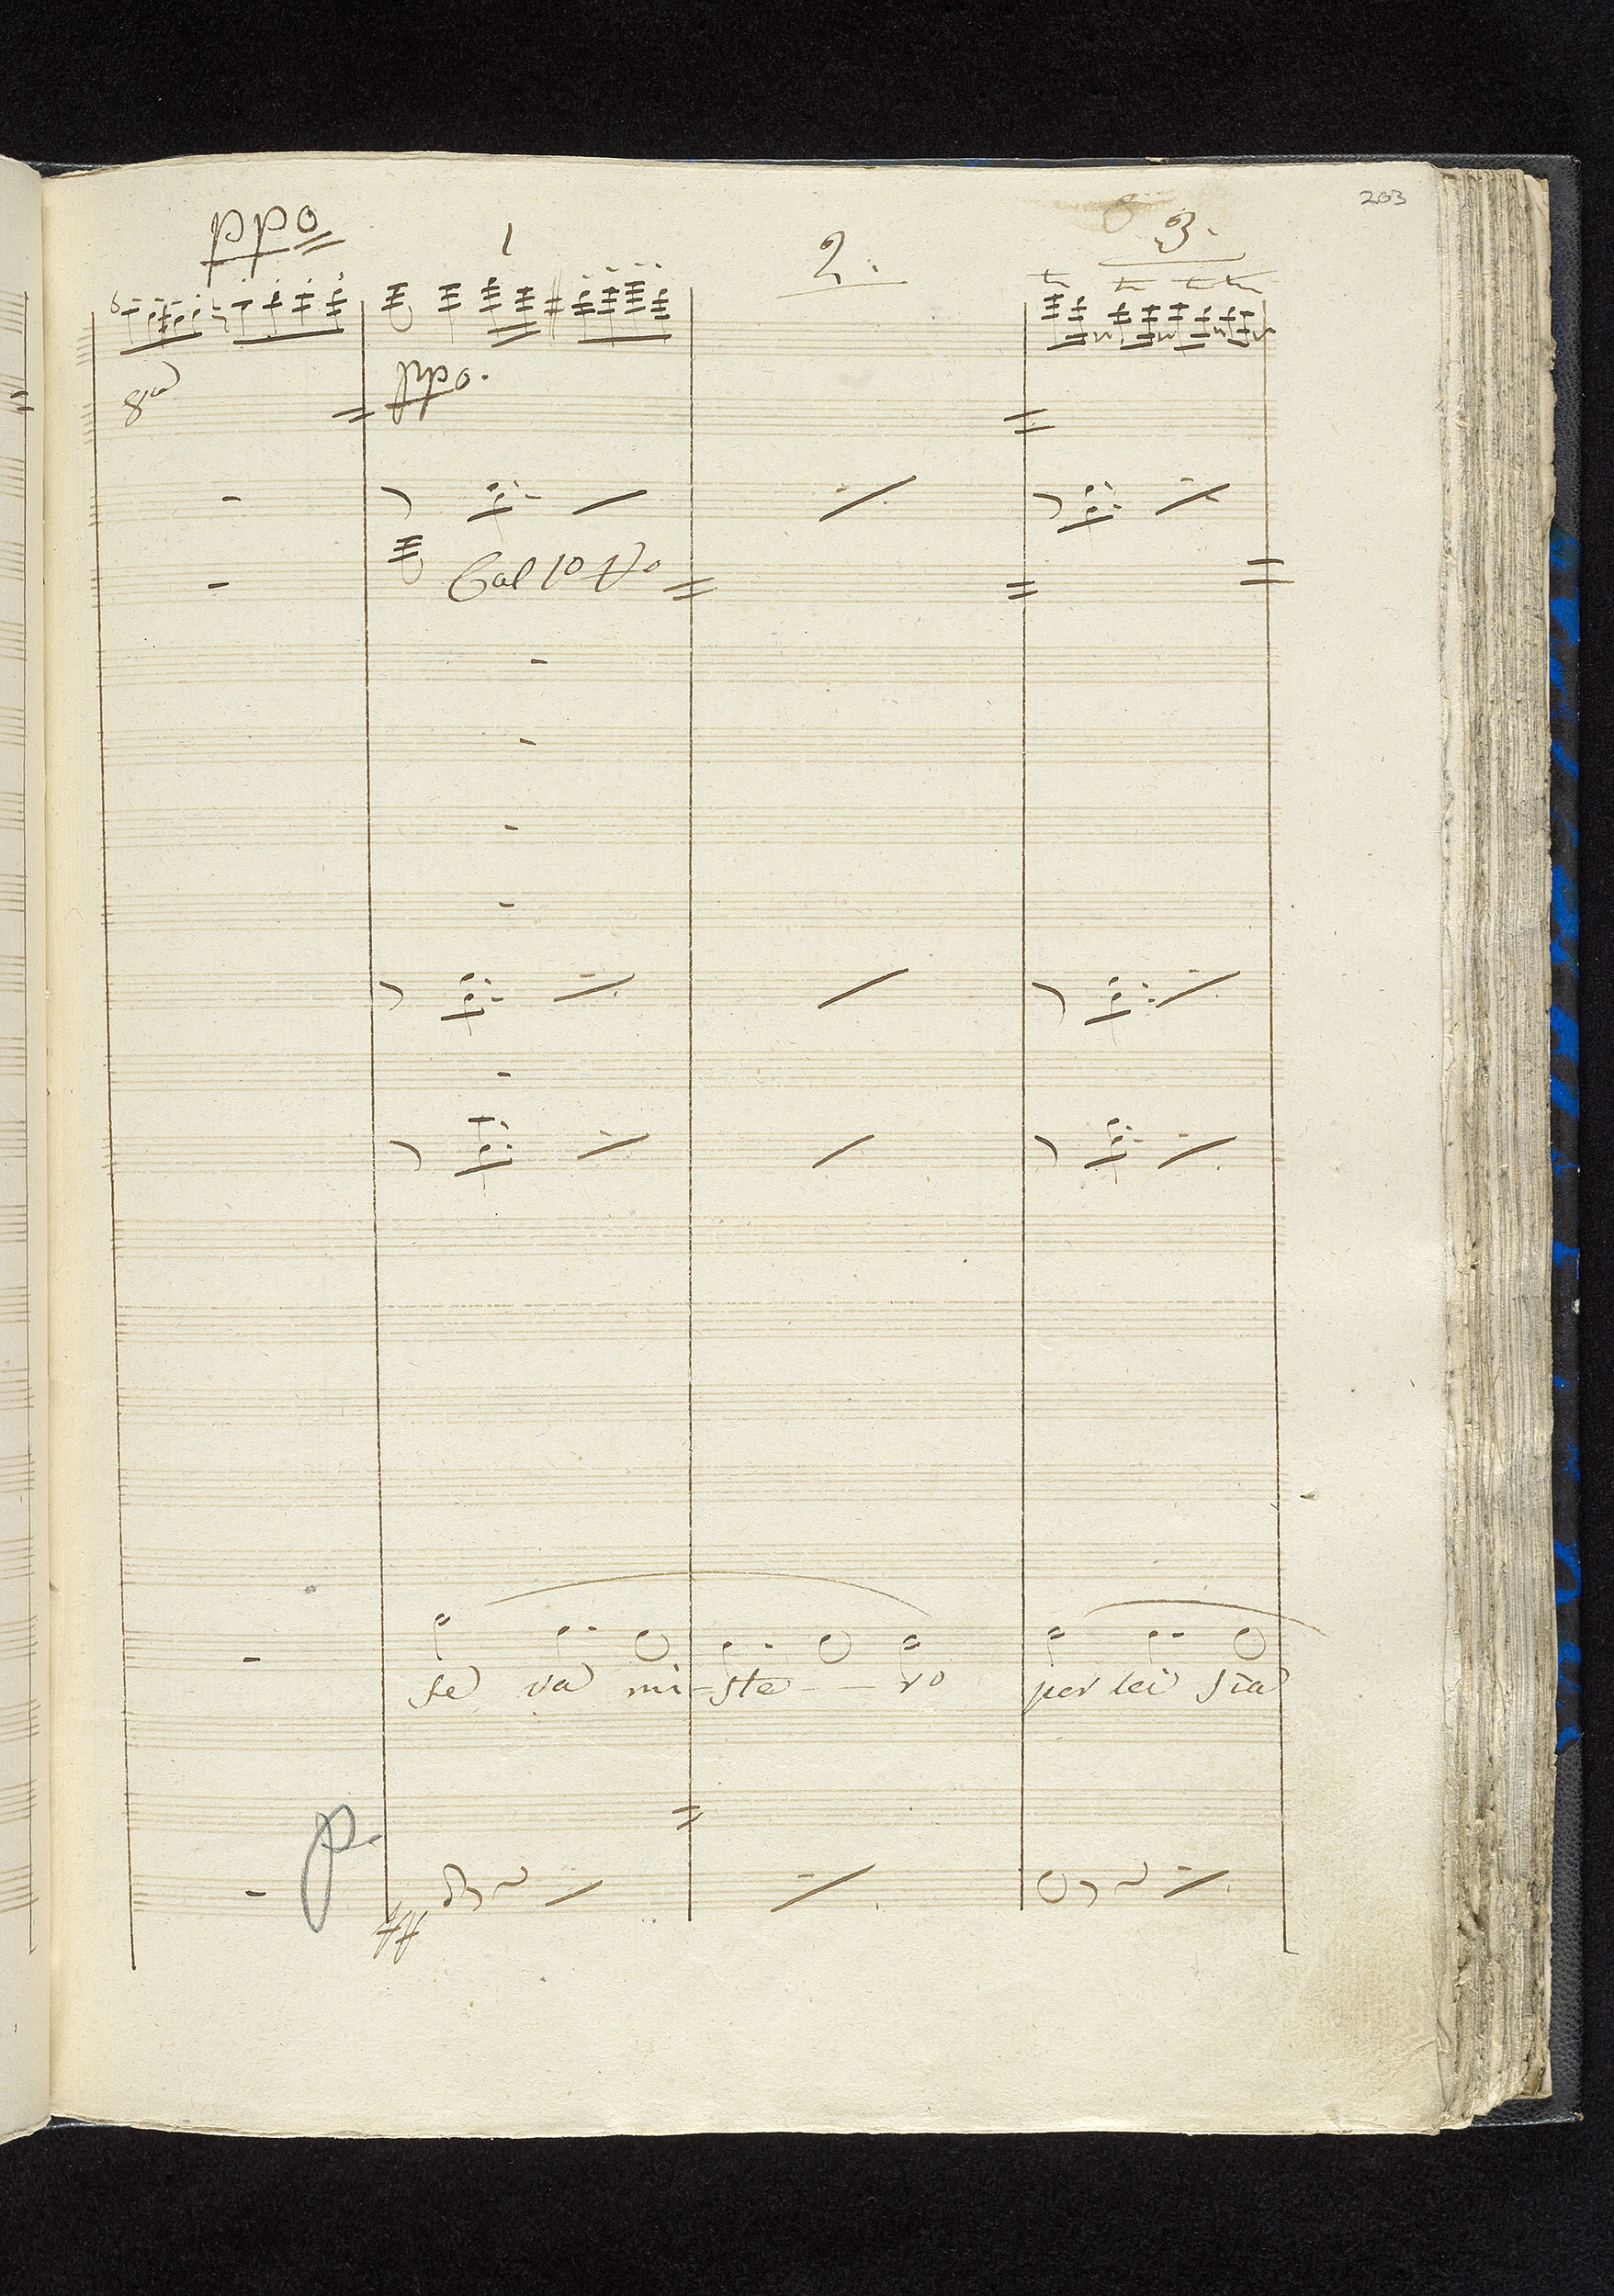 203
ppo
1
2.
3.
8va
ppo.
Col 10 Vo
se va mi-ste - - ro
per lei sia
p.